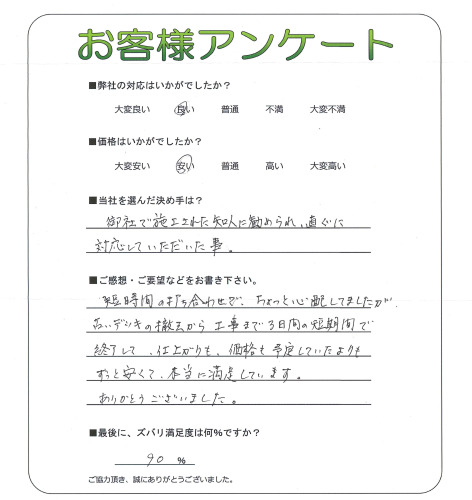 お客様アンケート
■弊社の対応はいかがでしたか？
大変良い 良い 普通 不満 大変不満
■価格はいかがでしたか？
大変安い 安い 普通 高い 大変高い
■当社を選んだ決め手は？
御社で施工された知人に勧められ、直ぐに
対応していただいた事。
■ご感想・ご要望などをお書き下さい。
短時間の打ち合わせで、ちょっと心配してましたが、
古いデッキの撤去から工事まで3日間の短期間で
終了して、仕上がりも、価格も予定していたよりも
ずっと安くて、本当に満足しています。
ありがとうございました。
■最後に、ズバリ満足度は何％ですか？
90 ％
ご協力頂き、誠にありがとうございました。